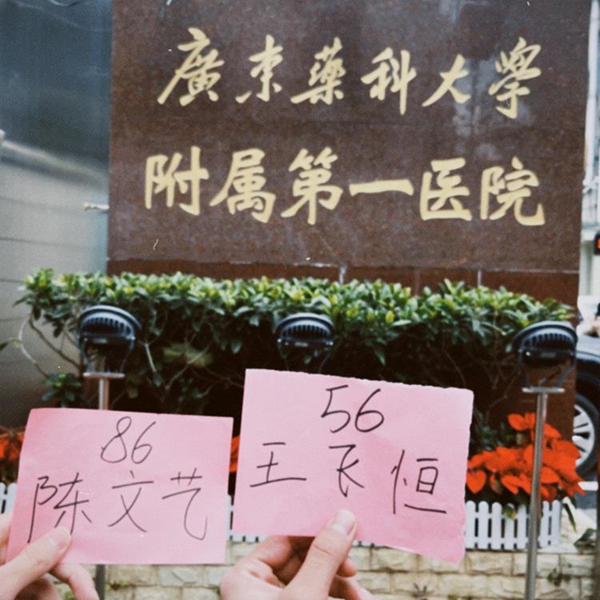 廣东藥科大學
附属第一医院
86
陈文艺
56
王飞恒